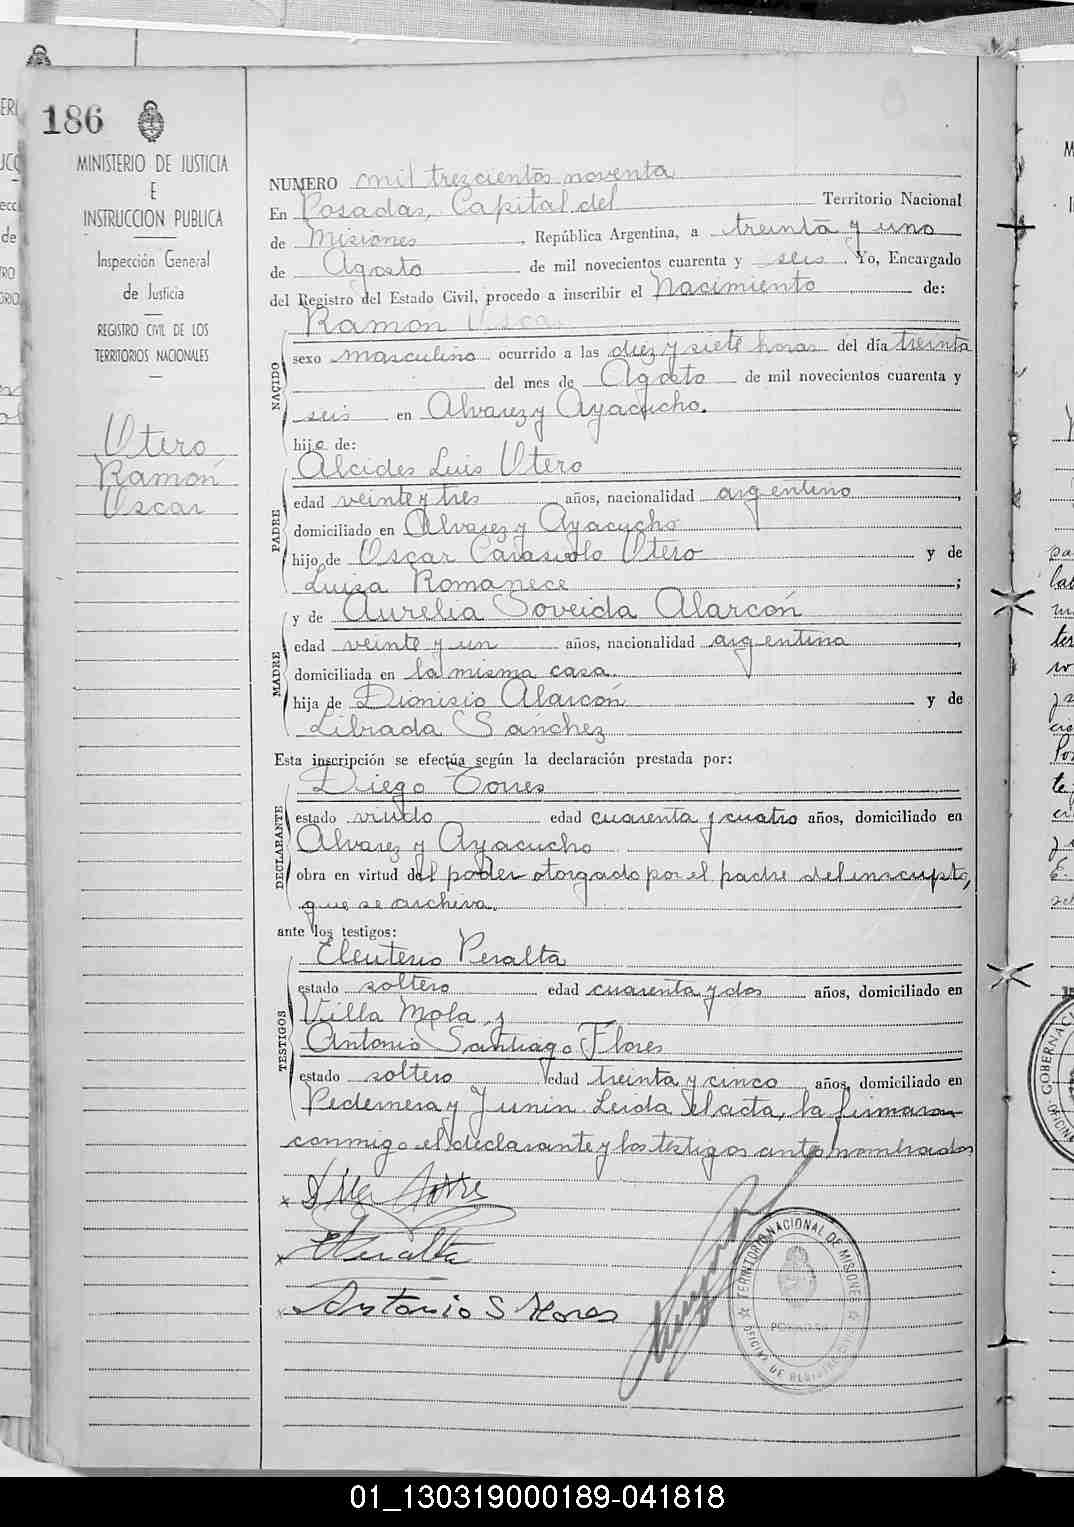 186
MINISTERIO DE JUSTICIA
E
INSTRUCCION PUBLICA
Inspección General
de Justicia
REGISTRO CIVIL DE LOS
TERRITORIOS NACIONALES
Otero
Ramón
Oscar
NUMERO mil trezcientos noventa
En Posadas, Capital del Territorio Nacional
de Misiones, República Argentina, a treinta y uno
de Agosto de mil novecientos cuarenta y seis. Yo, Encargado
del Registro del Estado Civil, procedo a inscribir el Nacimiento de:
NACIDO
Ramón Oscar
sexo masculino ocurrido a las diez y siete horas del día treinta
del mes de Agosto de mil novecientos cuarenta y
seis en Alvarez y Ayacucho.
hijo de:
PADRE
Alcides Luis Otero
edad veinte y tres años, nacionalidad argentino,
domiciliado en Alvarez y Ayacucho
hijo de Oscar Otero y de
Luisa Romanece;
MADRE
y de Aurelia Soveida Alarcón
edad veinte y un años, nacionalidad argentina,
domiciliada en la misma casa.
hija de Dionisio Alarcón y de
Librada Sanchez
Esta inscripción se efectúa según la declaración prestada por:
DECLARANTE
Diego Torres
estado viudo edad cuarenta y cuatro años, domiciliado en
Alvarez y Ayacucho
obra en virtud del poder otorgado por el padre del inscripto,
que se archiva.
ante los testigos:
TESTIGOS
Eleuterio Peralta
estado soltero edad cuarenta y dos años, domiciliado en
Villa Mola, y
Antonio Santiago Flores
estado soltero edad treinta y cinco años, domiciliado en
Pedernera y Junin. Leida el acta, la firmaron
conmigo el declarante y los testigos antes nombrados
E Peralta
Antonio S Flores
TERRITORIO NACIONAL DE MISIONES
POSADAS
01_130319000189-041818